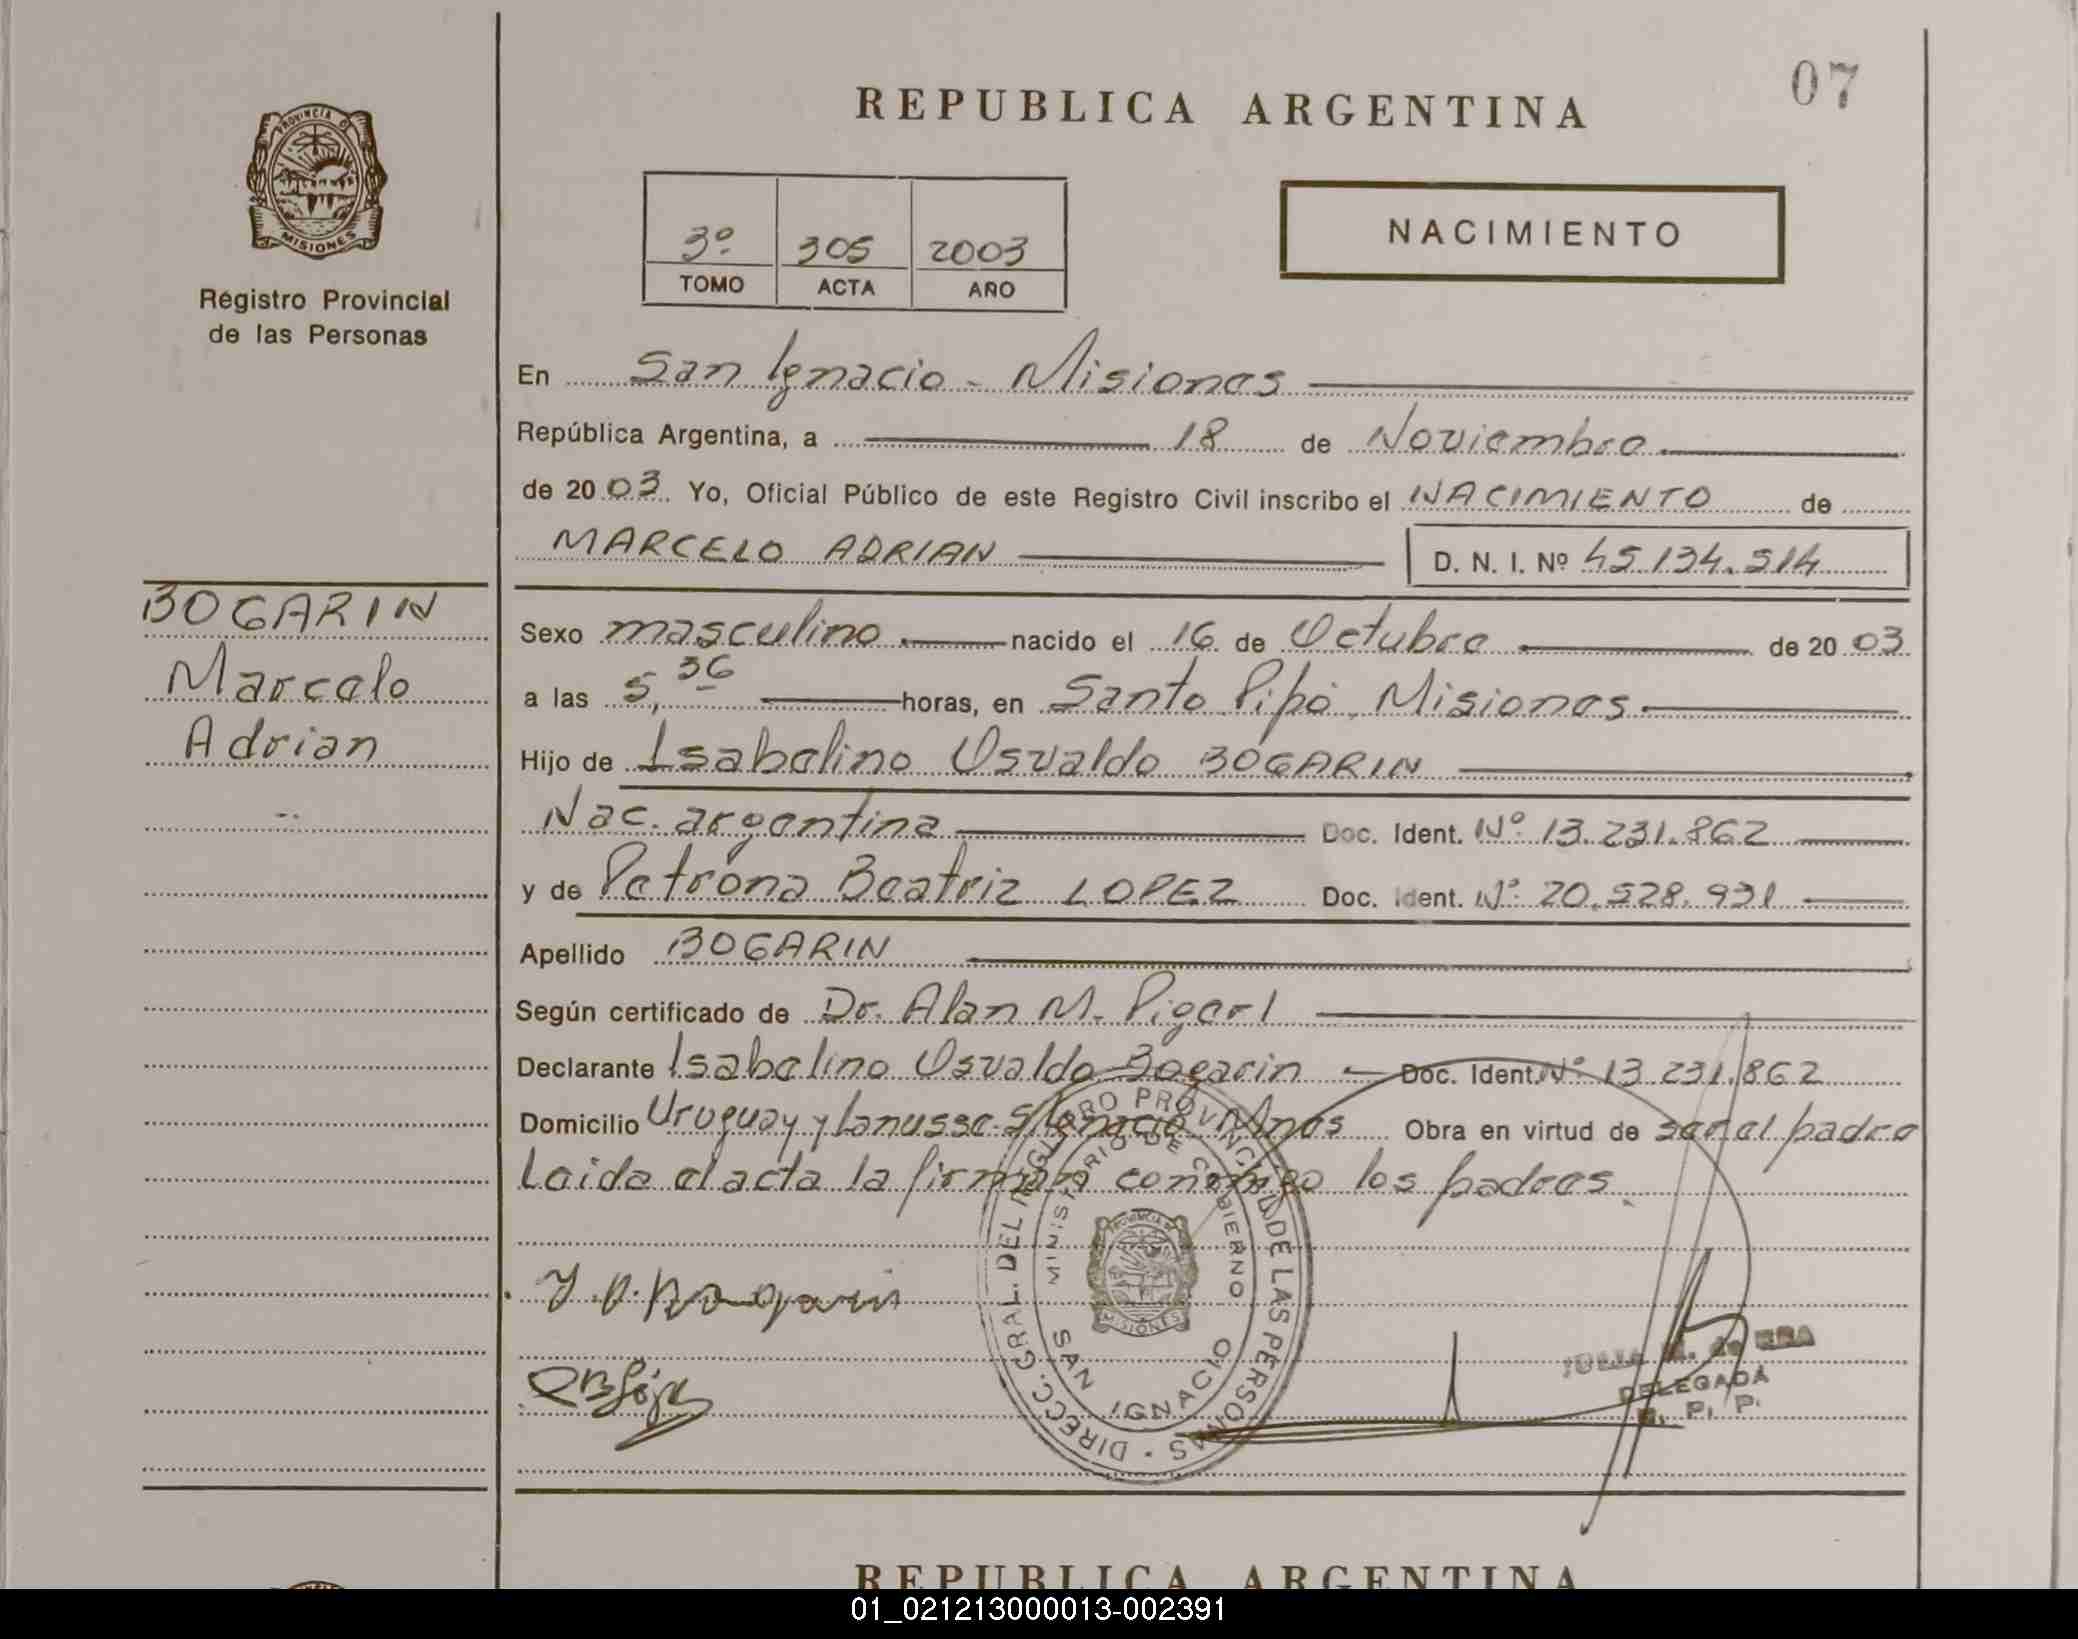 07
REPUBLICA ARGENTINA
PROVINCIA DE
MISIONES
Registro Provincial
de las Personas
3º 305 2003
TOMO ACTA AÑO
NACIMIENTO
En San Ignacio - Misiones
República Argentina, a 18 de Noviembre
de 2003. Yo, Oficial Público de este Registro Civil inscribo el NACIMIENTO de
MARCELO ADRIAN D. N. I. Nº 45.134.514
BOGARIN
Marcelo
Adrian
Sexo masculino nacido el 16 de Octubre de 2003
a las 5,36 horas, en Santo Pipó, Misiones
Hijo de Isabelino Osvaldo BOGARIN
Nac. argentina Doc. Ident. Nº 13.231.862
y de Petrona Beatriz LOPEZ Doc. Ident. Nº 20.528.931
Apellido BOGARIN
Según certificado de Dr. Alan M. Pigerl
Declarante Isabelino Osvaldo Bogarin Doc. Ident. Nº 13 231.862
Domicilio Uruguay y Lanusse - S/Ignacio - Mnes Obra en virtud de ser el padre
Leida el acta la firman conmigo los padres.
DIRECC. GRAL. DEL REGISTRO PROVINCIAL DE LAS PERSONAS
MINISTERIO DE GOBIERNO
PROVINCIA DE
MISIONES
SAN IGNACIO
JULIA M. de
DELEGADA
R. P. P.
REPUBLICA ARGENTINA
01_021213000013-002391